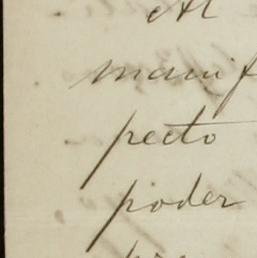 Al
manif
pecto
poder